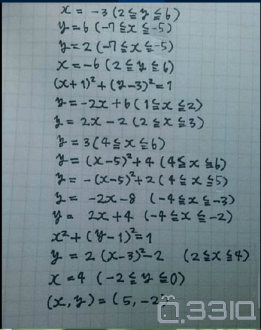 x = -3 (2 ≦ y ≦ 6)
y = 6 (-7 ≦ x ≦ -5)
y = 2 (-7 ≦ x ≦ -5)
x = -6 (2 ≦ y ≦ 6)
(x+1)² + (y-3)² = 1
y = -2x + 6 (1 ≦ x ≦ 2)
y = 2x - 2 (2 ≦ x ≦ 3)
y = 3 (4 ≦ x ≦ 6)
y = (x-5)² + 4 (4 ≦ x ≦ 6)
y = -(x-5)² + 2 (4 ≦ x ≦ 5)
y = -2x - 8 (-4 ≦ x ≦ -3)
y = 2x + 4 (-4 ≦ x ≦ -2)
x² + (y-1)² = 1
y = 2 (x-3)² - 2 (2 ≦ x ≦ 4)
x = 4 (-2 ≦ y ≦ 0)
(x, y) = (5, -2